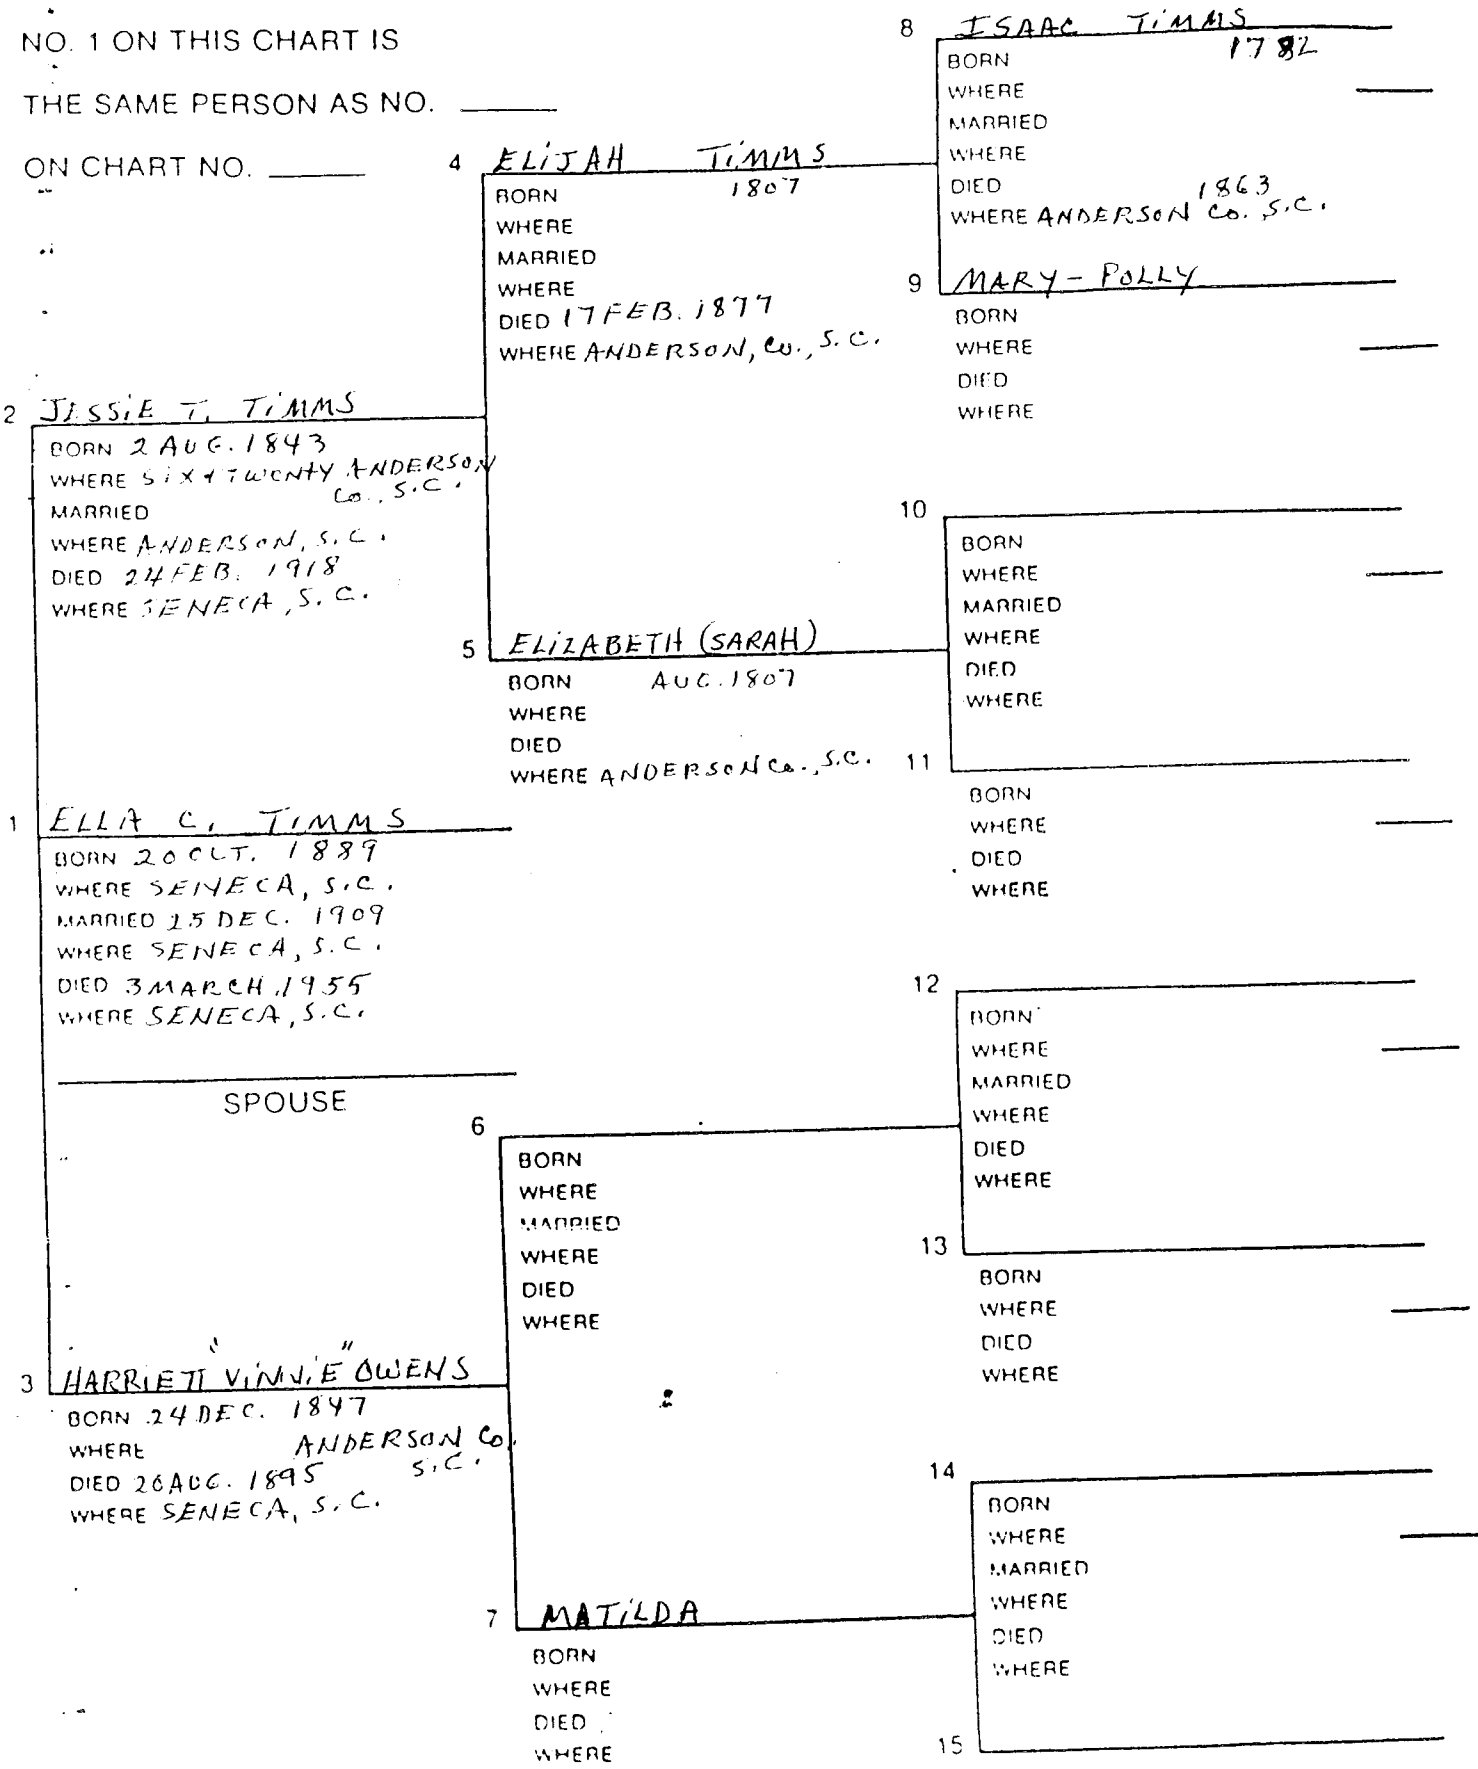 NO. 1 ON THIS CHART IS
THE SAME PERSON AS NO.
ON CHART NO.
1 ELLA C. TIMMS
BORN 20 OCT. 1889
WHERE SENECA, S.C.
MARRIED 25 DEC. 1909
WHERE SENECA, S.C.
DIED 3 MARCH 1955
WHERE SENECA, S.C.
SPOUSE
2 JESSIE T. TIMMS
BORN 2 AUG. 1843
WHERE SIX & TWENTY ANDERSON
Co., S.C.
MARRIED
WHERE ANDERSON, S.C.
DIED 24 FEB. 1918
WHERE SENECA, S.C.
3 HARRIETT "VINNIE" OWENS
BORN 24 DEC. 1847
WHERE ANDERSON Co.
S.C.
DIED AUG. 1895
WHERE SENECA, S.C.
4 ELIJAH TIMMS
BORN 1807
WHERE
MARRIED
WHERE
DIED 17 FEB. 1877
WHERE ANDERSON, Co., S.C.
5 ELIZABETH (SARAH)
BORN AUG. 1807
WHERE
DIED
WHERE ANDERSON Co., S.C.
6
BORN
WHERE
MARRIED
WHERE
DIED
WHERE
7 MATILDA
BORN
WHERE
DIED
WHERE
8 ISAAC TIMMS
BORN 1782
WHERE
MARRIED
WHERE
DIED 1863
WHERE ANDERSON Co. S.C.
9 MARY - POLLY
BORN
WHERE
DIED
WHERE
10
BORN
WHERE
MARRIED
WHERE
DIED
WHERE
11
BORN
WHERE
DIED
WHERE
12
BORN
WHERE
MARRIED
WHERE
DIED
WHERE
13
BORN
WHERE
DIED
WHERE
14
BORN
WHERE
MARRIED
WHERE
DIED
WHERE
15